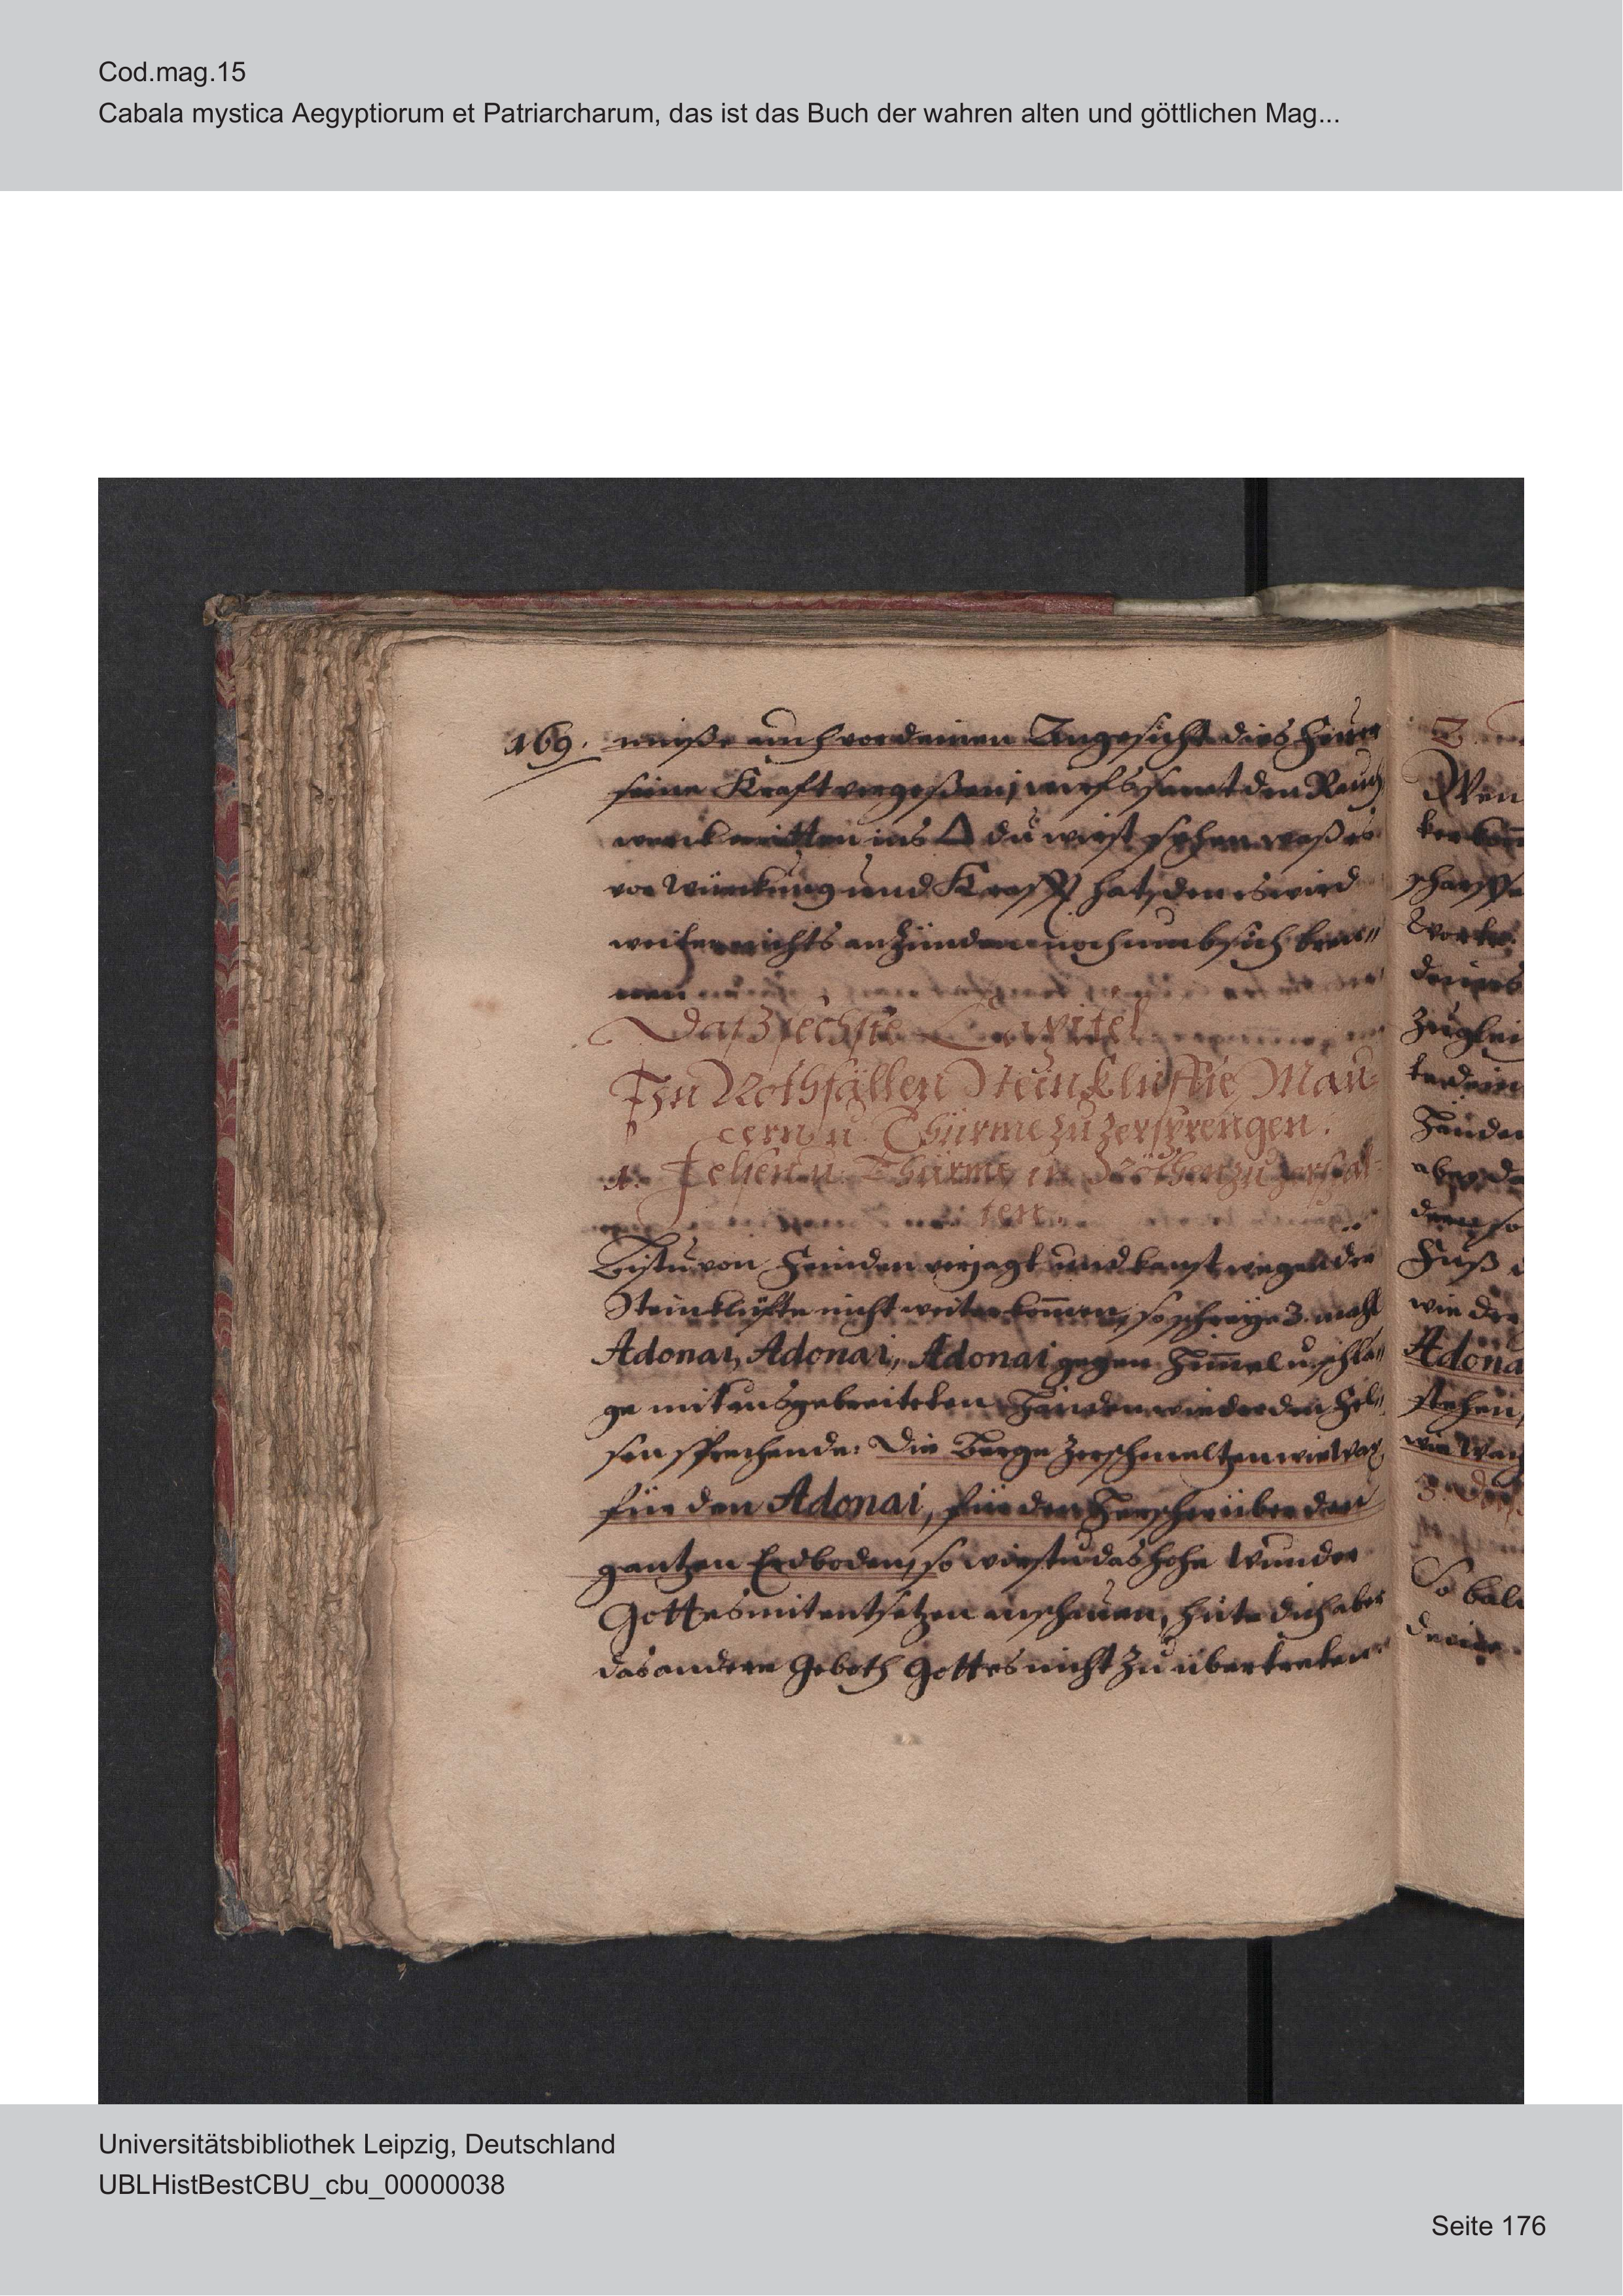 Cod.mag.15
Cabala mystica Aegyptiorum et Patriarcharum, das ist das Buch der wahren alten und göttlichen Mag...
169. müße auch vor deinen Angesicht dies Feuer
seine Kraft vergeßen, wirfs samt den Rauch
werck mitten ins △ du wirst sehen waß es
vor Würckung und Krafft hat, den es wird
weiter nichts anzünden noch umb sich bren„
nen
Daß sechste Capitel
In Nothfällen Steinkluffte, Mau„
ern u. Thürme zu zersprengen.
1. Felsen u. Thürme in Nöthen zu zerspal„
ten.
Bistu von Feinden verjagt und kanst wegen der
Steinklüfte nicht weiter kom̄en, so schreye 3. mahl
Adonai, Adonai, Adonai gegen Him̄el u. schla„
ge mit ausgebreiteten Händen wieder den Fel„
sen sprechende: Die Berge zerschmeltzen wie Wax
für den Adonai, für den Herscher über den
gantzen Erdboden, so wirstu das hohe Wunder
Gottes mit entsetzen anschauen, hüte dich aber
das andere Geboth Gottes nicht zu übertreten
2.
Wen
scharffe
Worte
deines
zuglei
Händen
aber da
Fuß d
wie der
Adona
stehen,
wie Wax
3.
So bal
Universitätsbibliothek Leipzig, Deutschland
UBLHistBestCBU_cbu_00000038
Seite 176